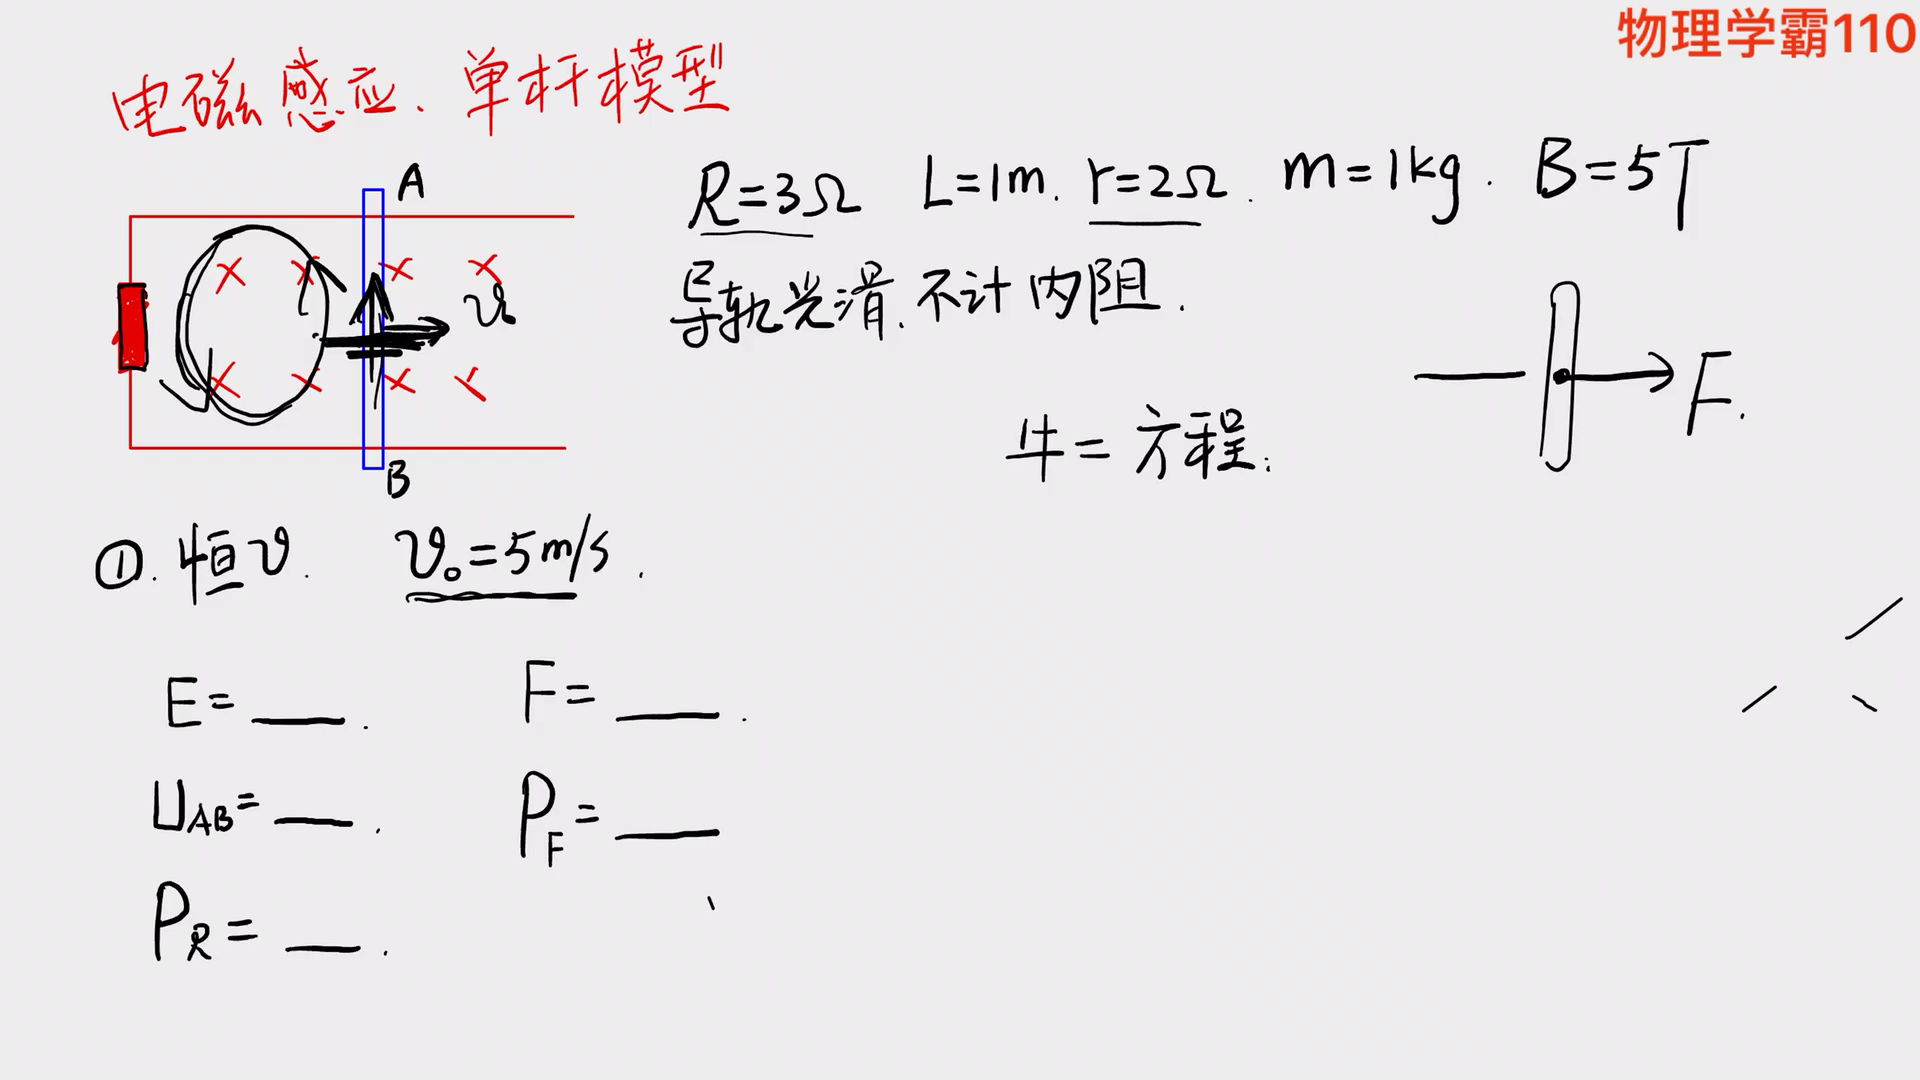 物理学霸110
电磁感应.单杆模型
A
R=3Ω L=1m. r=2Ω. m=1kg. B=5T
导轨光滑.不计内阻.
× × × ×
v₀
× × × ×
F.
牛=方程:
B
①.恒v. v₀=5m/s.
E=____. F=____.
U_AB=____. P_F=____
P_R=____.